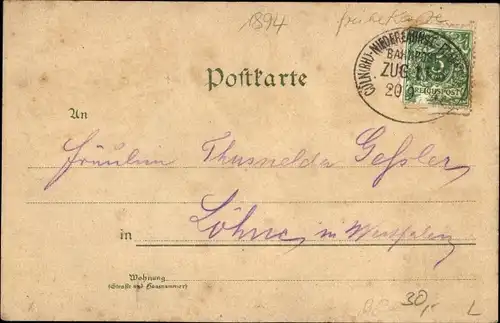 1894
Postkarte
BAHNPOST
ZUG
20
REICHSPOST
An
Fräulein Thusnelda Geßler,
in Löhne, in Westfalen
Wohnung
(Straße und Hausnummer)
30,-
L